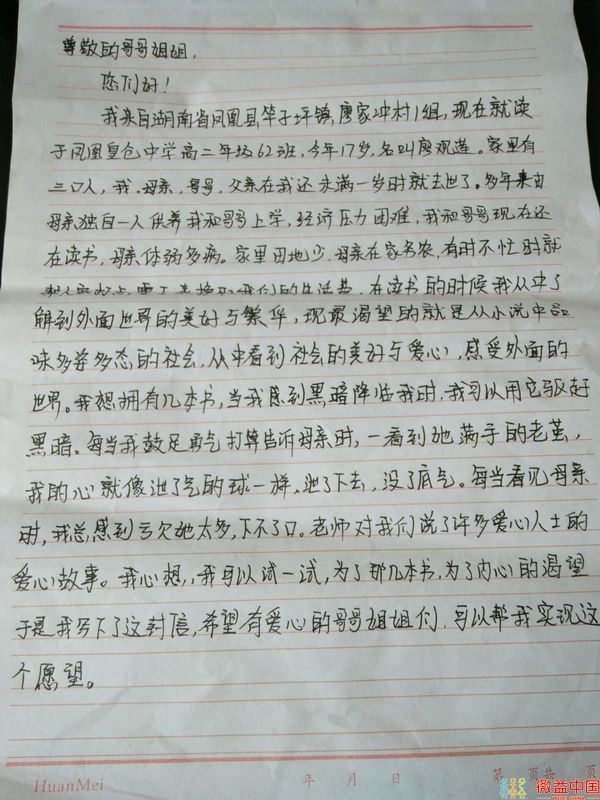 尊敬的哥哥姐姐,
您们好!
我来自湖南省凤凰县竿子坪镇廖家冲村1组,现在就读
于凤凰皇仓中学高二年级62班,今年17岁,名叫廖观莲。家里有
三口人,我,母亲,哥哥,父亲在我还未满一岁时就去世了。多年来由
母亲独自一人供养我和哥哥上学,经济压力困难,我和哥哥现在还
在读书,母亲体弱多病。家里田地少,母亲在家务农,有时不忙时就
我们的生活费,在读书的时候我从中了
解到外面世界的美好与繁华,现最渴望的就是从小说中品
味多姿多态的社会,从中看到社会的美好与爱心,感受外面的
世界。我想拥有几本书,当我感到黑暗降临我时,我可以用它驱赶
黑暗。每当我鼓足勇气打算告诉母亲时,一看到她满手的老茧,
我的心就像泄了气的球一样,泄了下去,没了底气。每当看见母亲
时,我总感到亏欠她太多,下不了口。老师对我们说了许多爱心人士的
爱心故事。我心想,我可以试一试,为了那几本书,为了内心的渴望
于是我写下了这封信,希望有爱心的哥哥姐姐们,可以帮我实现这
个愿望。
HuanMei 年 月 日 第 页共 页
微益中国